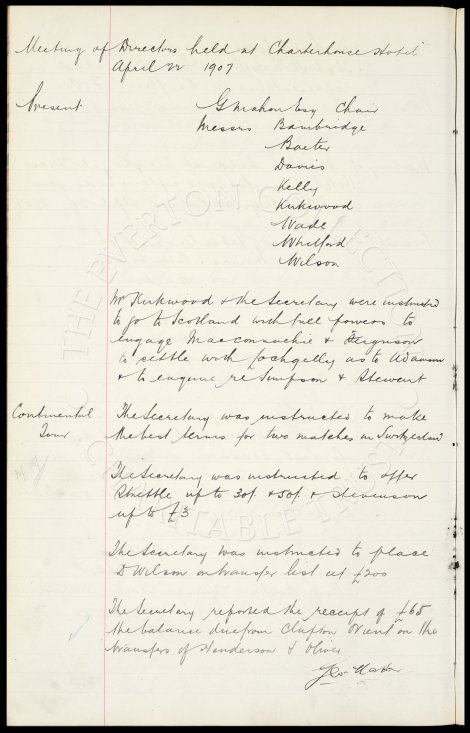 Meeting of Directors held at Charterhouse Hotel
April 22 1907
Present
G Mahon Esq Chair
Messrs Bainbridge
Baxter
Davies
Kelly
Kirkwood
Wade
Whitford
Wilson
Mr Kirkwood & the Secretary were instructed
to go to Scotland with full powers to
engage Macconnachie & Ferguson
to settle with Lochgelly as to Adamson
& to enquire re Simpson & Stewart
Continental
Tour
The Secretary was instructed to make
the best terms for two matches in Switzerland
The Secretary was instructed to offer
Strettle up to 30/- & 50/- & Stevenson
up to £3
The Secretary was instructed to place
D Wilson on transfer list at £200
The Secretary reported the receipt of £65
the balance due from Clapton Orient on the
transfers of Henderson & Oliver
Geo Mahon
THE EVERTON COLLECTION
CHARITABLE TRUST